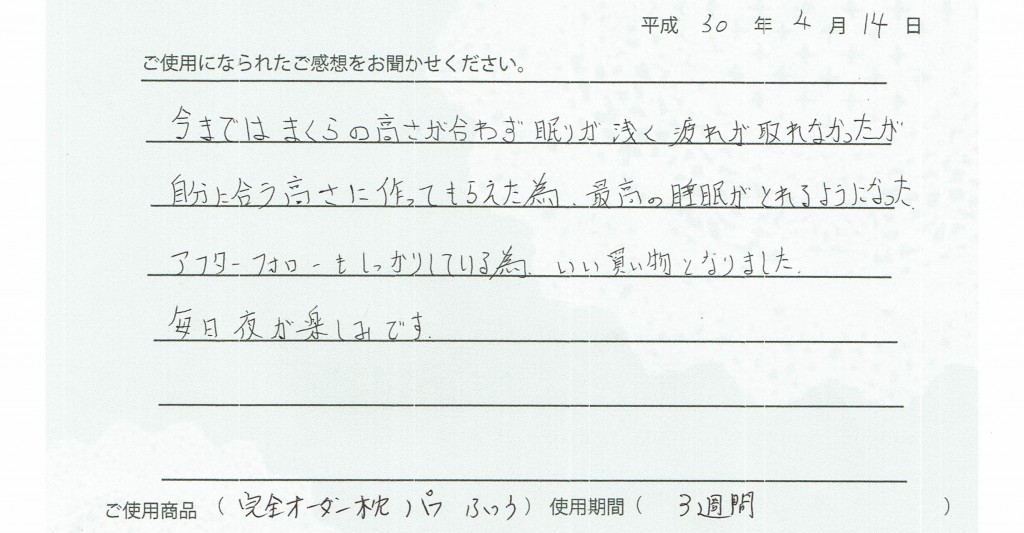 平成 30 年 4 月 14 日
ご使用になられたご感想をお聞かせください。
今まではまくらの高さが合わず眠りが浅く疲れが取れなかったが
自分に合う高さに作ってもらえた為、最高の睡眠がとれるようになった。
アフターフォローもしっかりしている為、いい買い物となりました。
毎日夜が楽しみです。
ご使用商品 ( 完全オーダー枕 パワ ふつう ) 使用期間 ( 3週間 )